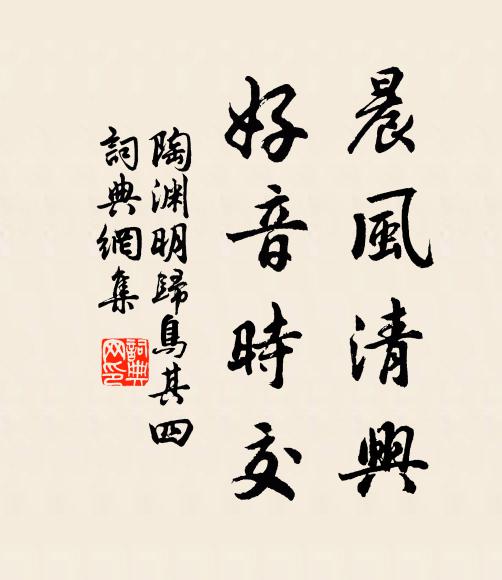 晨風清興
好音時交
陶淵明歸鳥其四
詞典網集
詞典
网印